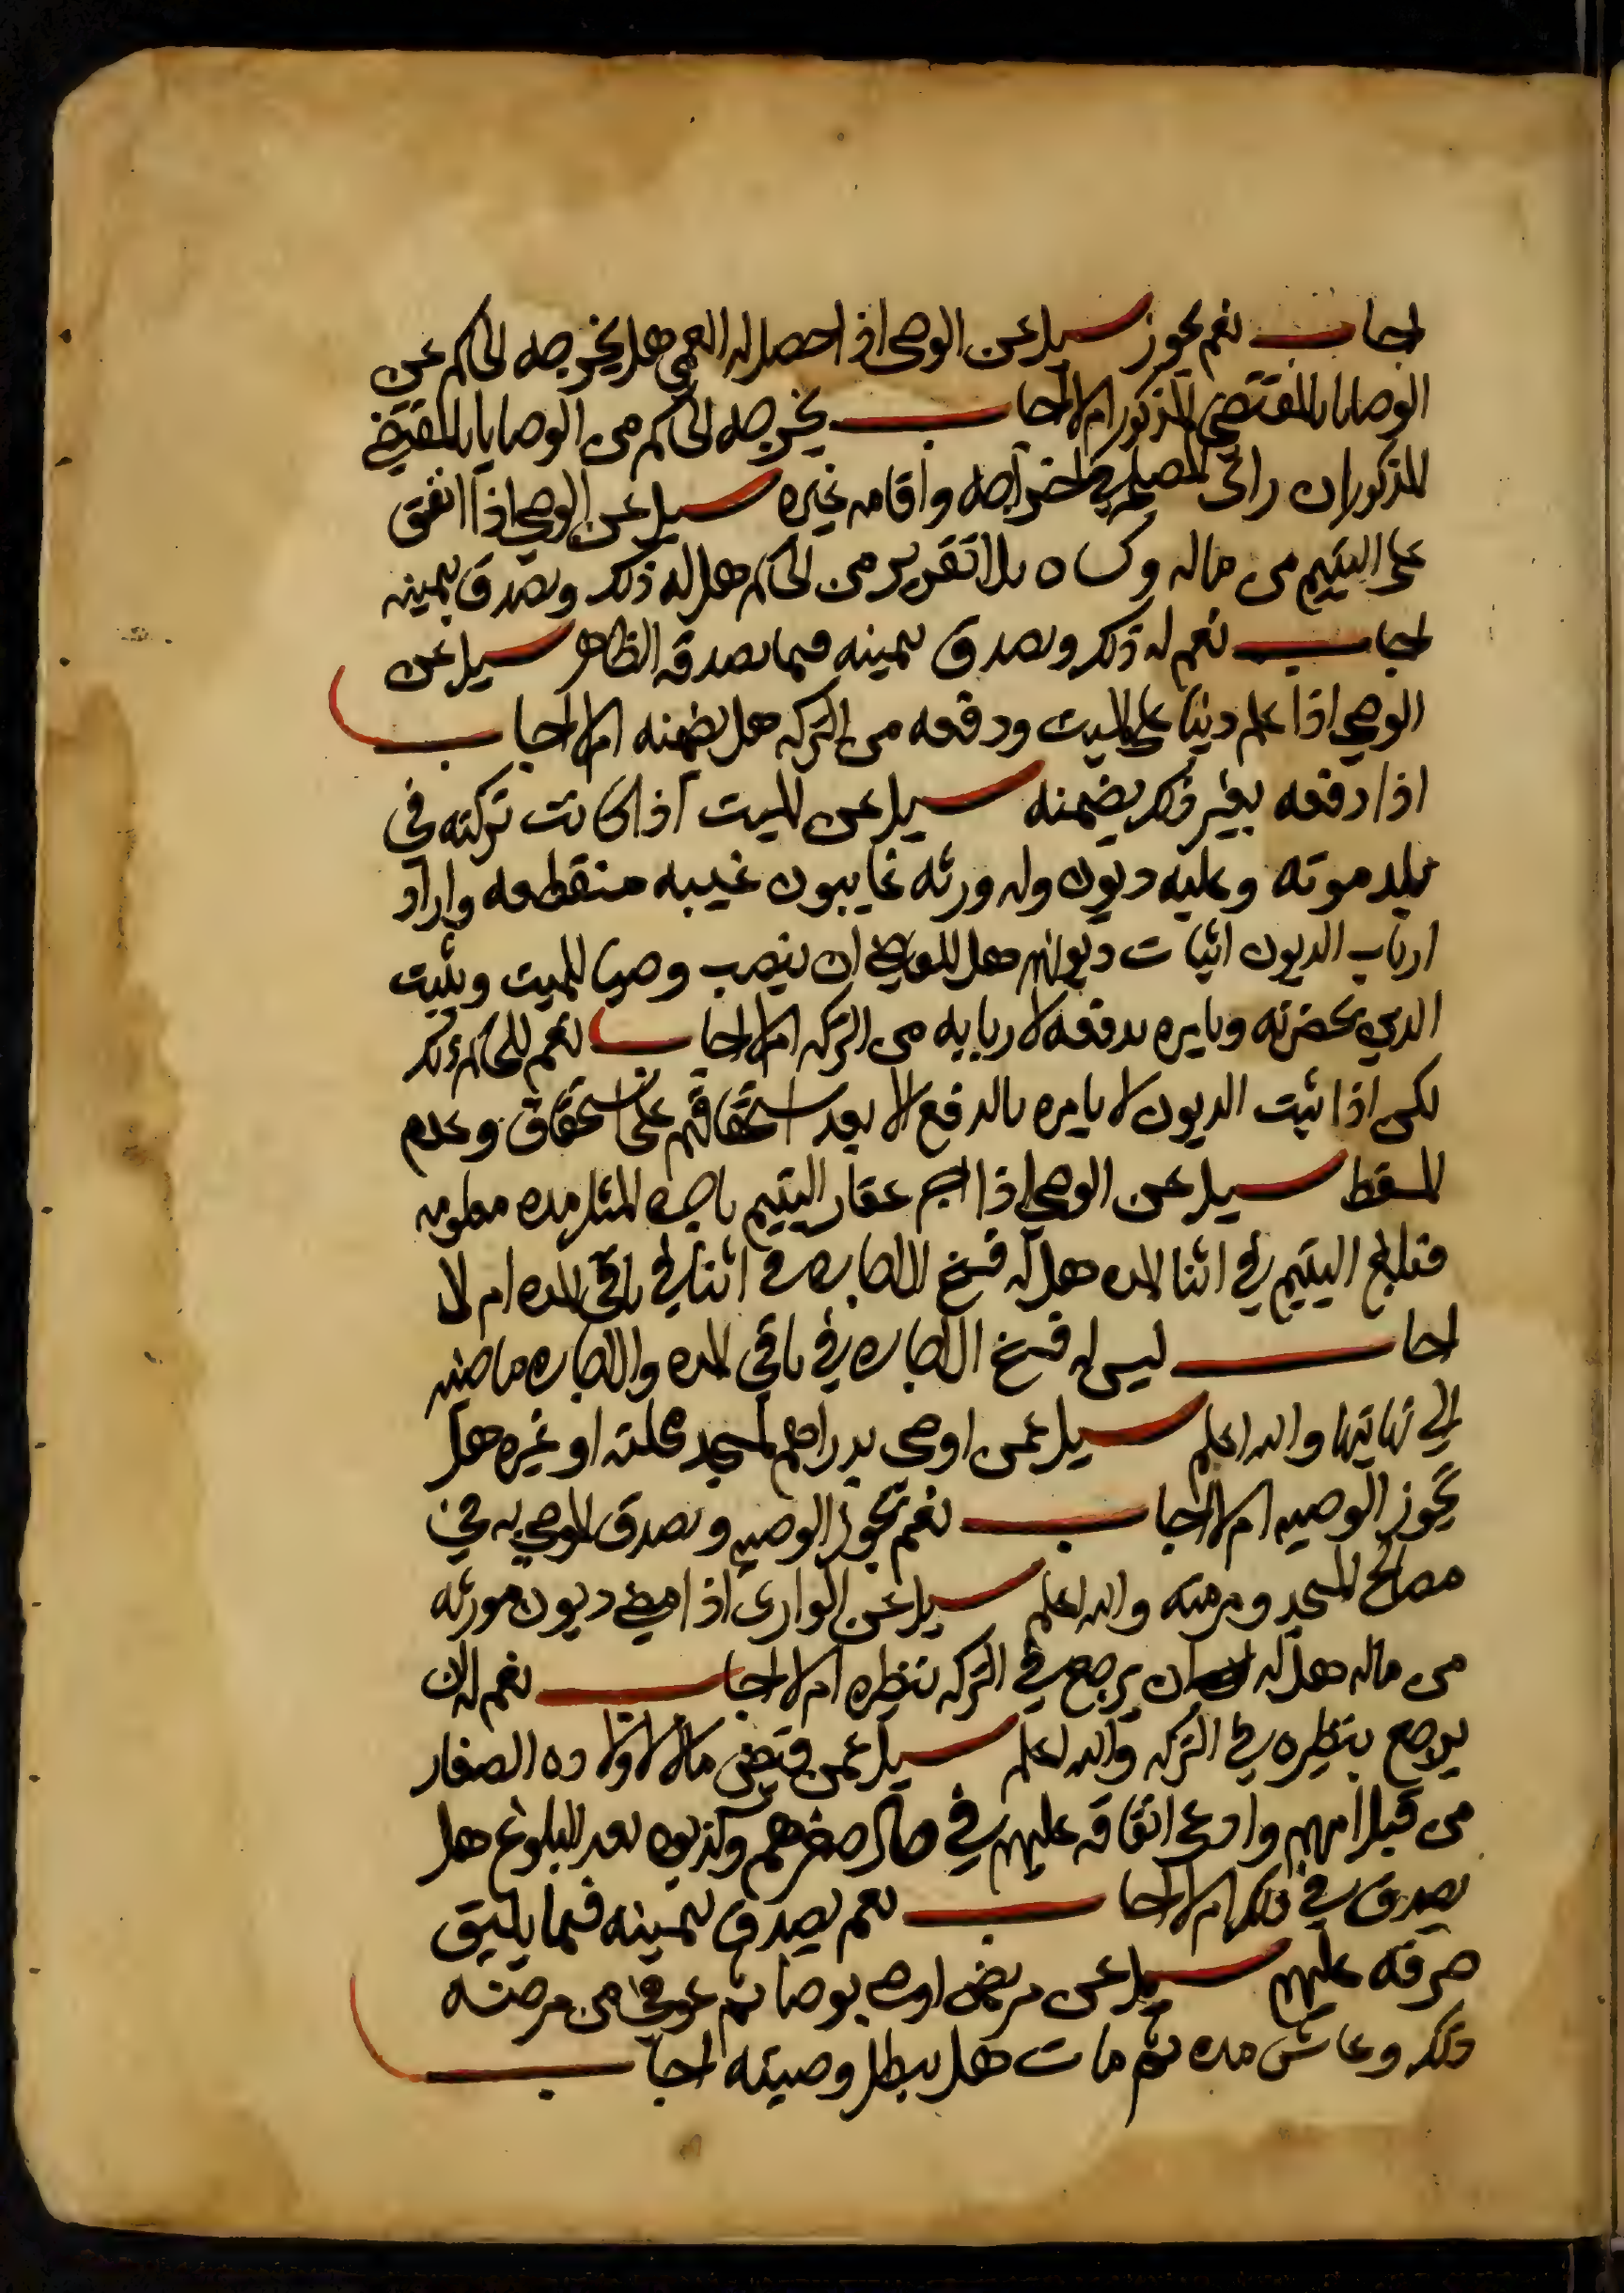 اجاب نعم يجوز سيل عن الوصي اذا حصل له العمى هل يخرجه الحاكم عن
الوصايا بالمقتضي المذكور ام لا اجاب يخرجه الحاكم من الوصايا بالمقتضي
المذكور ان راى المصلحة في اخراجه واقامه غيره سيل عن الوصي اذا انفق
على اليتيم من ماله وكساه بلا تقرير من الحاكم هل له ذلك ويصدق بيمينه
اجاب نعم له ذلك ويصدق بيمينه فيما يصدقه الظاهر سيل عن
الوصي اذا علم دينا على الميت ودفعه من التركه هل يضمنه ام لا اجاب
اذا دفعه بغير ذلك يضمنه سيل عن الميت اذا كانت تركته في
بلد موته وعليه ديون وله ورثه غايبون غيبه منقطعه واراد
ارباب الديون اثبات ديونهم هل للقاضي ان ينصب وصيا للميت ويثبت
الدين بحضرته ويامره بدفعه لاربابه من التركه ام لا اجاب نعم للحاكم ذلك
لكن اذا ثبت الديون لا يامره بالدفع الا بعد استحقاقهم على استحقاق وعدم
المسقط سيل عن الوصي اذا اجر عقار اليتيم باجره المثل مده معلومه
فبلغ اليتيم في اثنا المده هل له فسخ الاجاره في اثنا في باقي المده ام لا
اجاب ليس له فسخ الاجاره في باقي المده والاجاره ماضيه
الي نهايتها والله اعلم سيل عمن اوصى بدراهم لمسجد محلته او غيره هل
يجوز الوصيه ام لا اجاب نعم تجوز الوصيه ويصدق الموصي به في
مصالح المسجد ومرمته والله اعلم سيل عن الوارث اذا اقضى ديون مورثه
من ماله هل له ان يرجع في التركه بنظيره ام لا اجاب نعم له ان
يرجع بنظيره في التركه والله اعلم سيل عمن قبض مالا لاولاده الصغار
من قبل امهم وادعى انفاقه عليهم في حال صغرهم وكذبوه بعد البلوغ هل
يصدق في ذلك ام لا اجاب نعم يصدق بيمينه فيما يليق
صرفه عليهم سيل عن مريض اوصى بوصايا ثم عوفي من مرضه
ذلك وعاش مده ثم مات هل يبطل وصيته اجاب